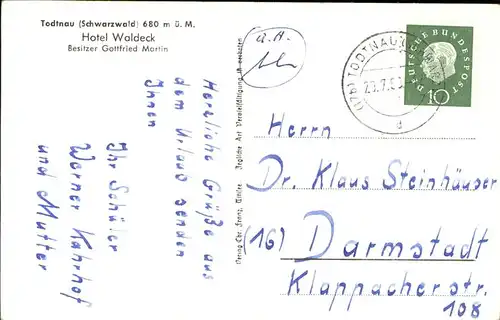 Todtnau (Schwarzwald) 680 m ü. M.
Hotel Waldeck
Besitzer Gottfried Martin
Herzliche Grüße aus
dem Urlaub senden
Ihnen
Ihr Schüler
Werner Kahrhof
und Mutter
Jegliche Art Vervielfältigung ist verboten
DEUTSCHE BUNDESPOST
10
(17b) TODTNAU
d
Herrn
Dr. Klaus Steinhäuser
(16) Darmstadt
Klappacherstr.
108